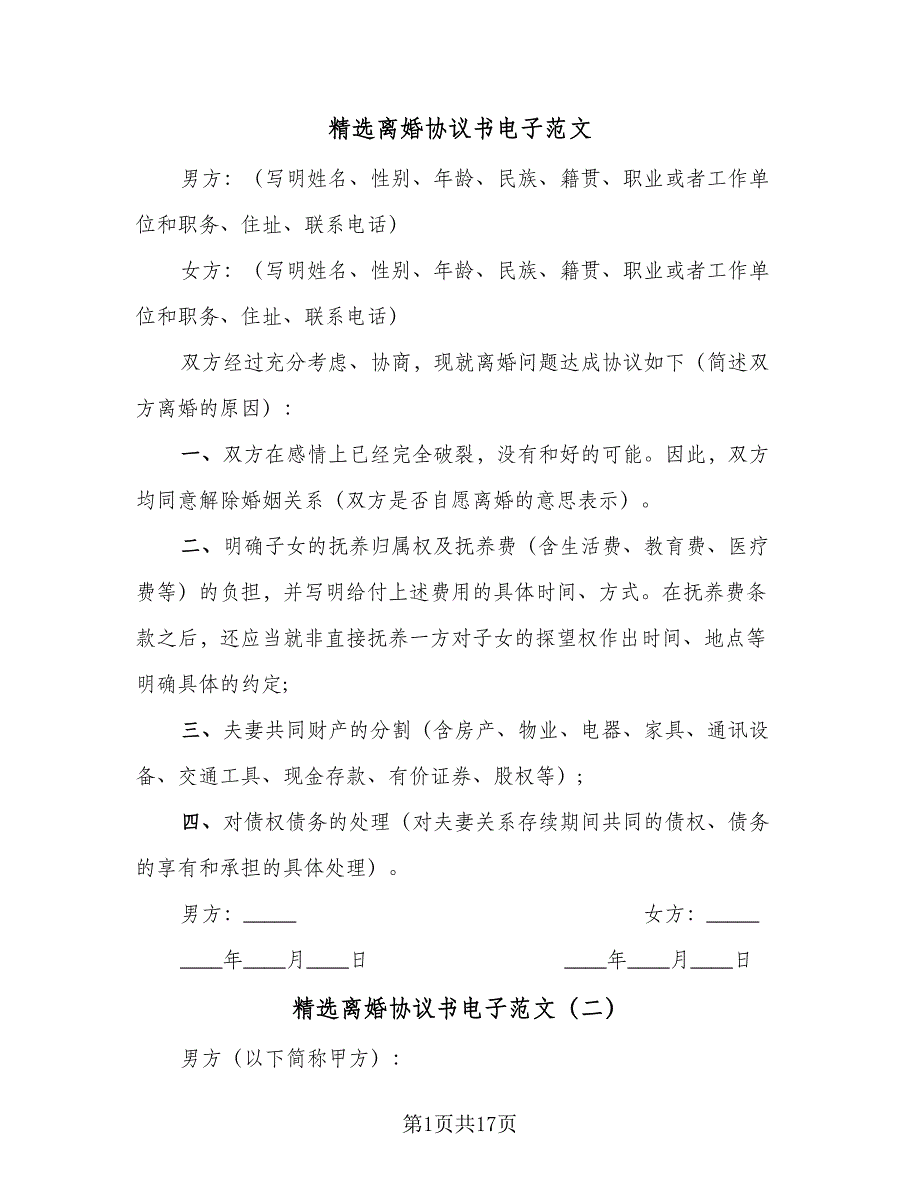 精选离婚协议书电子范文
男方：（写明姓名、性别、年龄、民族、籍贯、职业或者工作单
位和职务、住址、联系电话）
女方：（写明姓名、性别、年龄、民族、籍贯、职业或者工作单
位和职务、住址、联系电话）
双方经过充分考虑、协商，现就离婚问题达成协议如下（简述双
方离婚的原因）：
一、双方在感情上已经完全破裂，没有和好的可能。因此，双方
均同意解除婚姻关系（双方是否自愿离婚的意思表示）。
二、明确子女的抚养归属权及抚养费（含生活费、教育费、医疗
费等）的负担，并写明给付上述费用的具体时间、方式。在抚养费条
款之后，还应当就非直接抚养一方对子女的探望权作出时间、地点等
明确具体的约定;
三、夫妻共同财产的分割（含房产、物业、电器、家具、通讯设
备、交通工具、现金存款、有价证券、股权等）;
四、对债权债务的处理（对夫妻关系存续期间共同的债权、债务
的享有和承担的具体处理）。
男方：_____ 女方：_____
____年____月____日 ____年____月____日
精选离婚协议书电子范文（二）
男方（以下简称甲方）：
第1页共17页